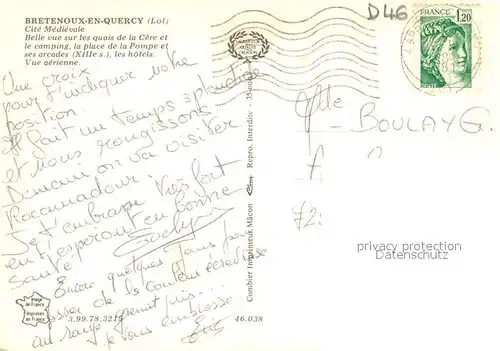 BRETENOUX-EN-QUERCY (Lot)
Cité Médiévale
Belle vue sur les quais de la Cère et
le camping, la place de la Pompe et
ses arcades (XIIIe s.), les hôtels.
Vue aérienne.
Une croix
pour t'indiquer notre
position
Il fait un temps splendide
et nous rougissons
Demain on va visiter
Rocamadour.
Je t'embrasse très fort
en t'espérant en bonne
santé
Evelyne
Encore quelques jours pour
passer de la couleur écrevisse
au rouge puis...
Je vous embrasse
Eric
D46
FRANCE
1,20
POSTES
Mlle
BOULAY G.
privacy protection
watermark
Combier Imprimeur Mâcon Cim Repro. Interdite
Image
de France
Imprimée
en France
3.99.78.3215
46.038